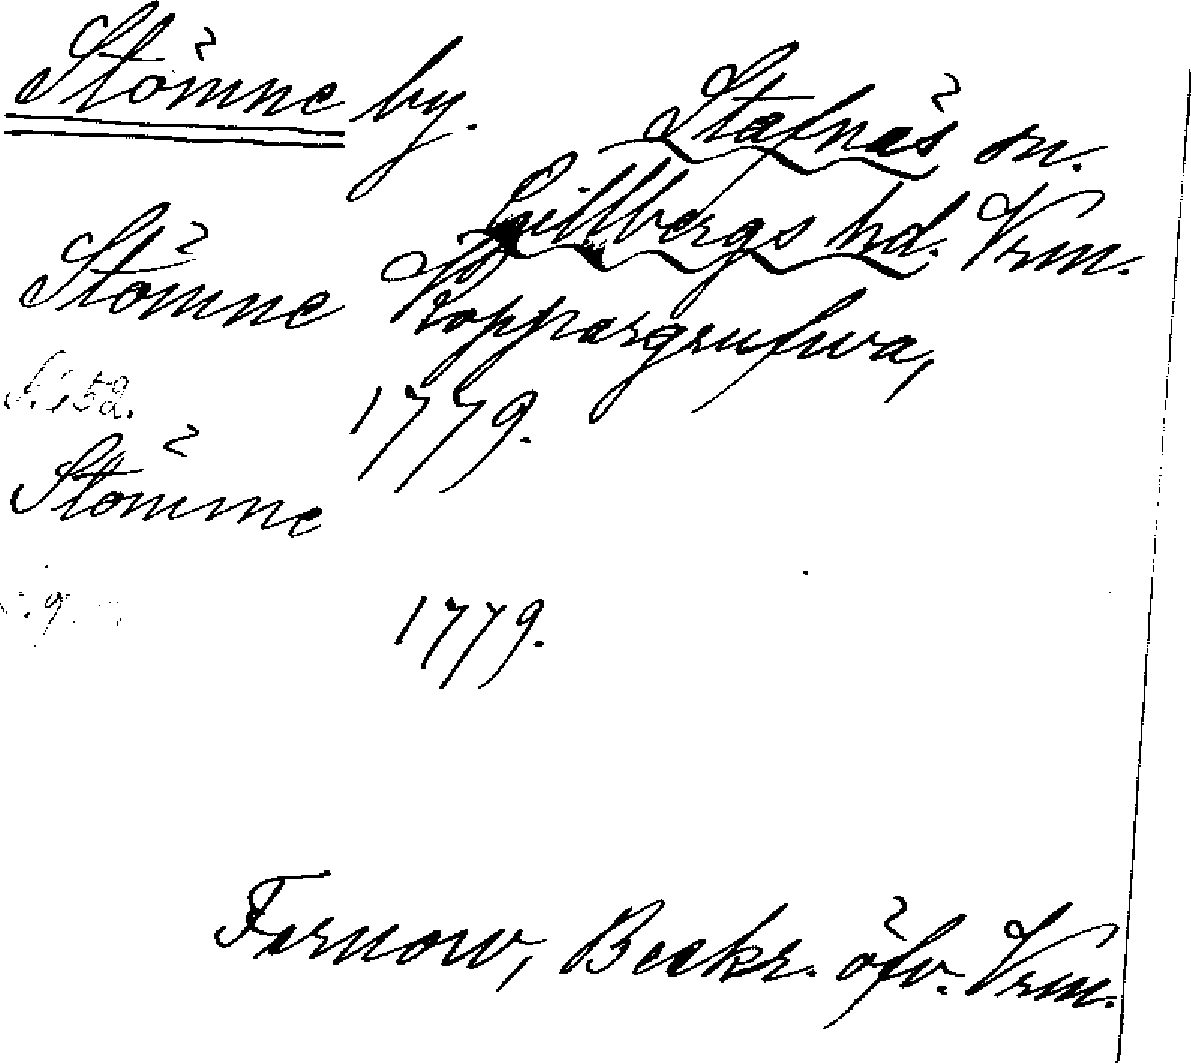 Stömne by.
Stafnäs sn.
Gillbergs hd. Vrm.
Stömne Koppargrufwa,
S. 152. 1779.
Stömne
1779.
Fernow, Beskr. öfv. Vrm.